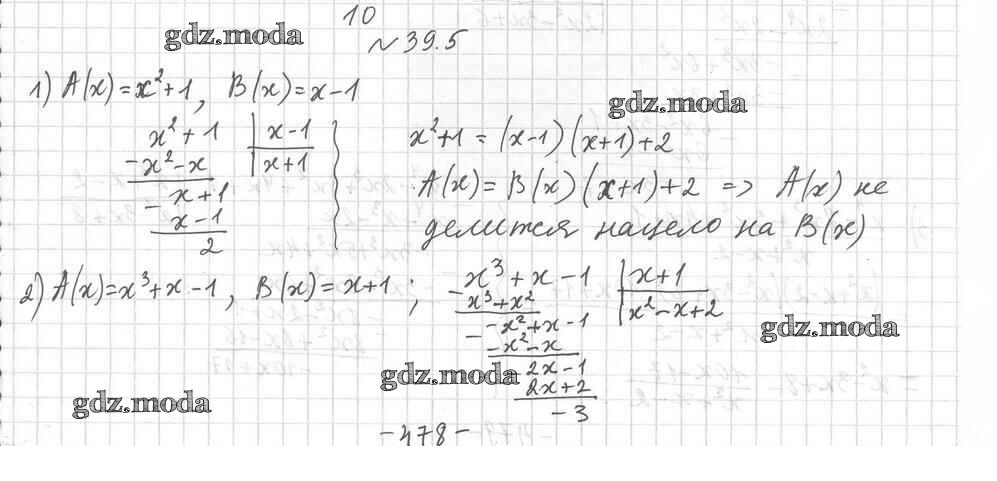 10
gdz.moda
№39.5
1) A(x)=x²+1, B(x)=x-1
gdz.moda
x²+1 | x-1
-x²-x | x+1
x+1
- x-1
2
x²+1=(x-1)(x+1)+2
A(x)=B(x)(x+1)+2 => A(x) не
делится нацело на B(x)
2) A(x)=x³+x-1, B(x)=x+1;
x³+x-1 | x+1
- x³+x² | x²-x+2
-x²+x-1
- -x²-x
2x-1
2x+2
-3
gdz.moda
gdz.moda
gdz.moda
-478-